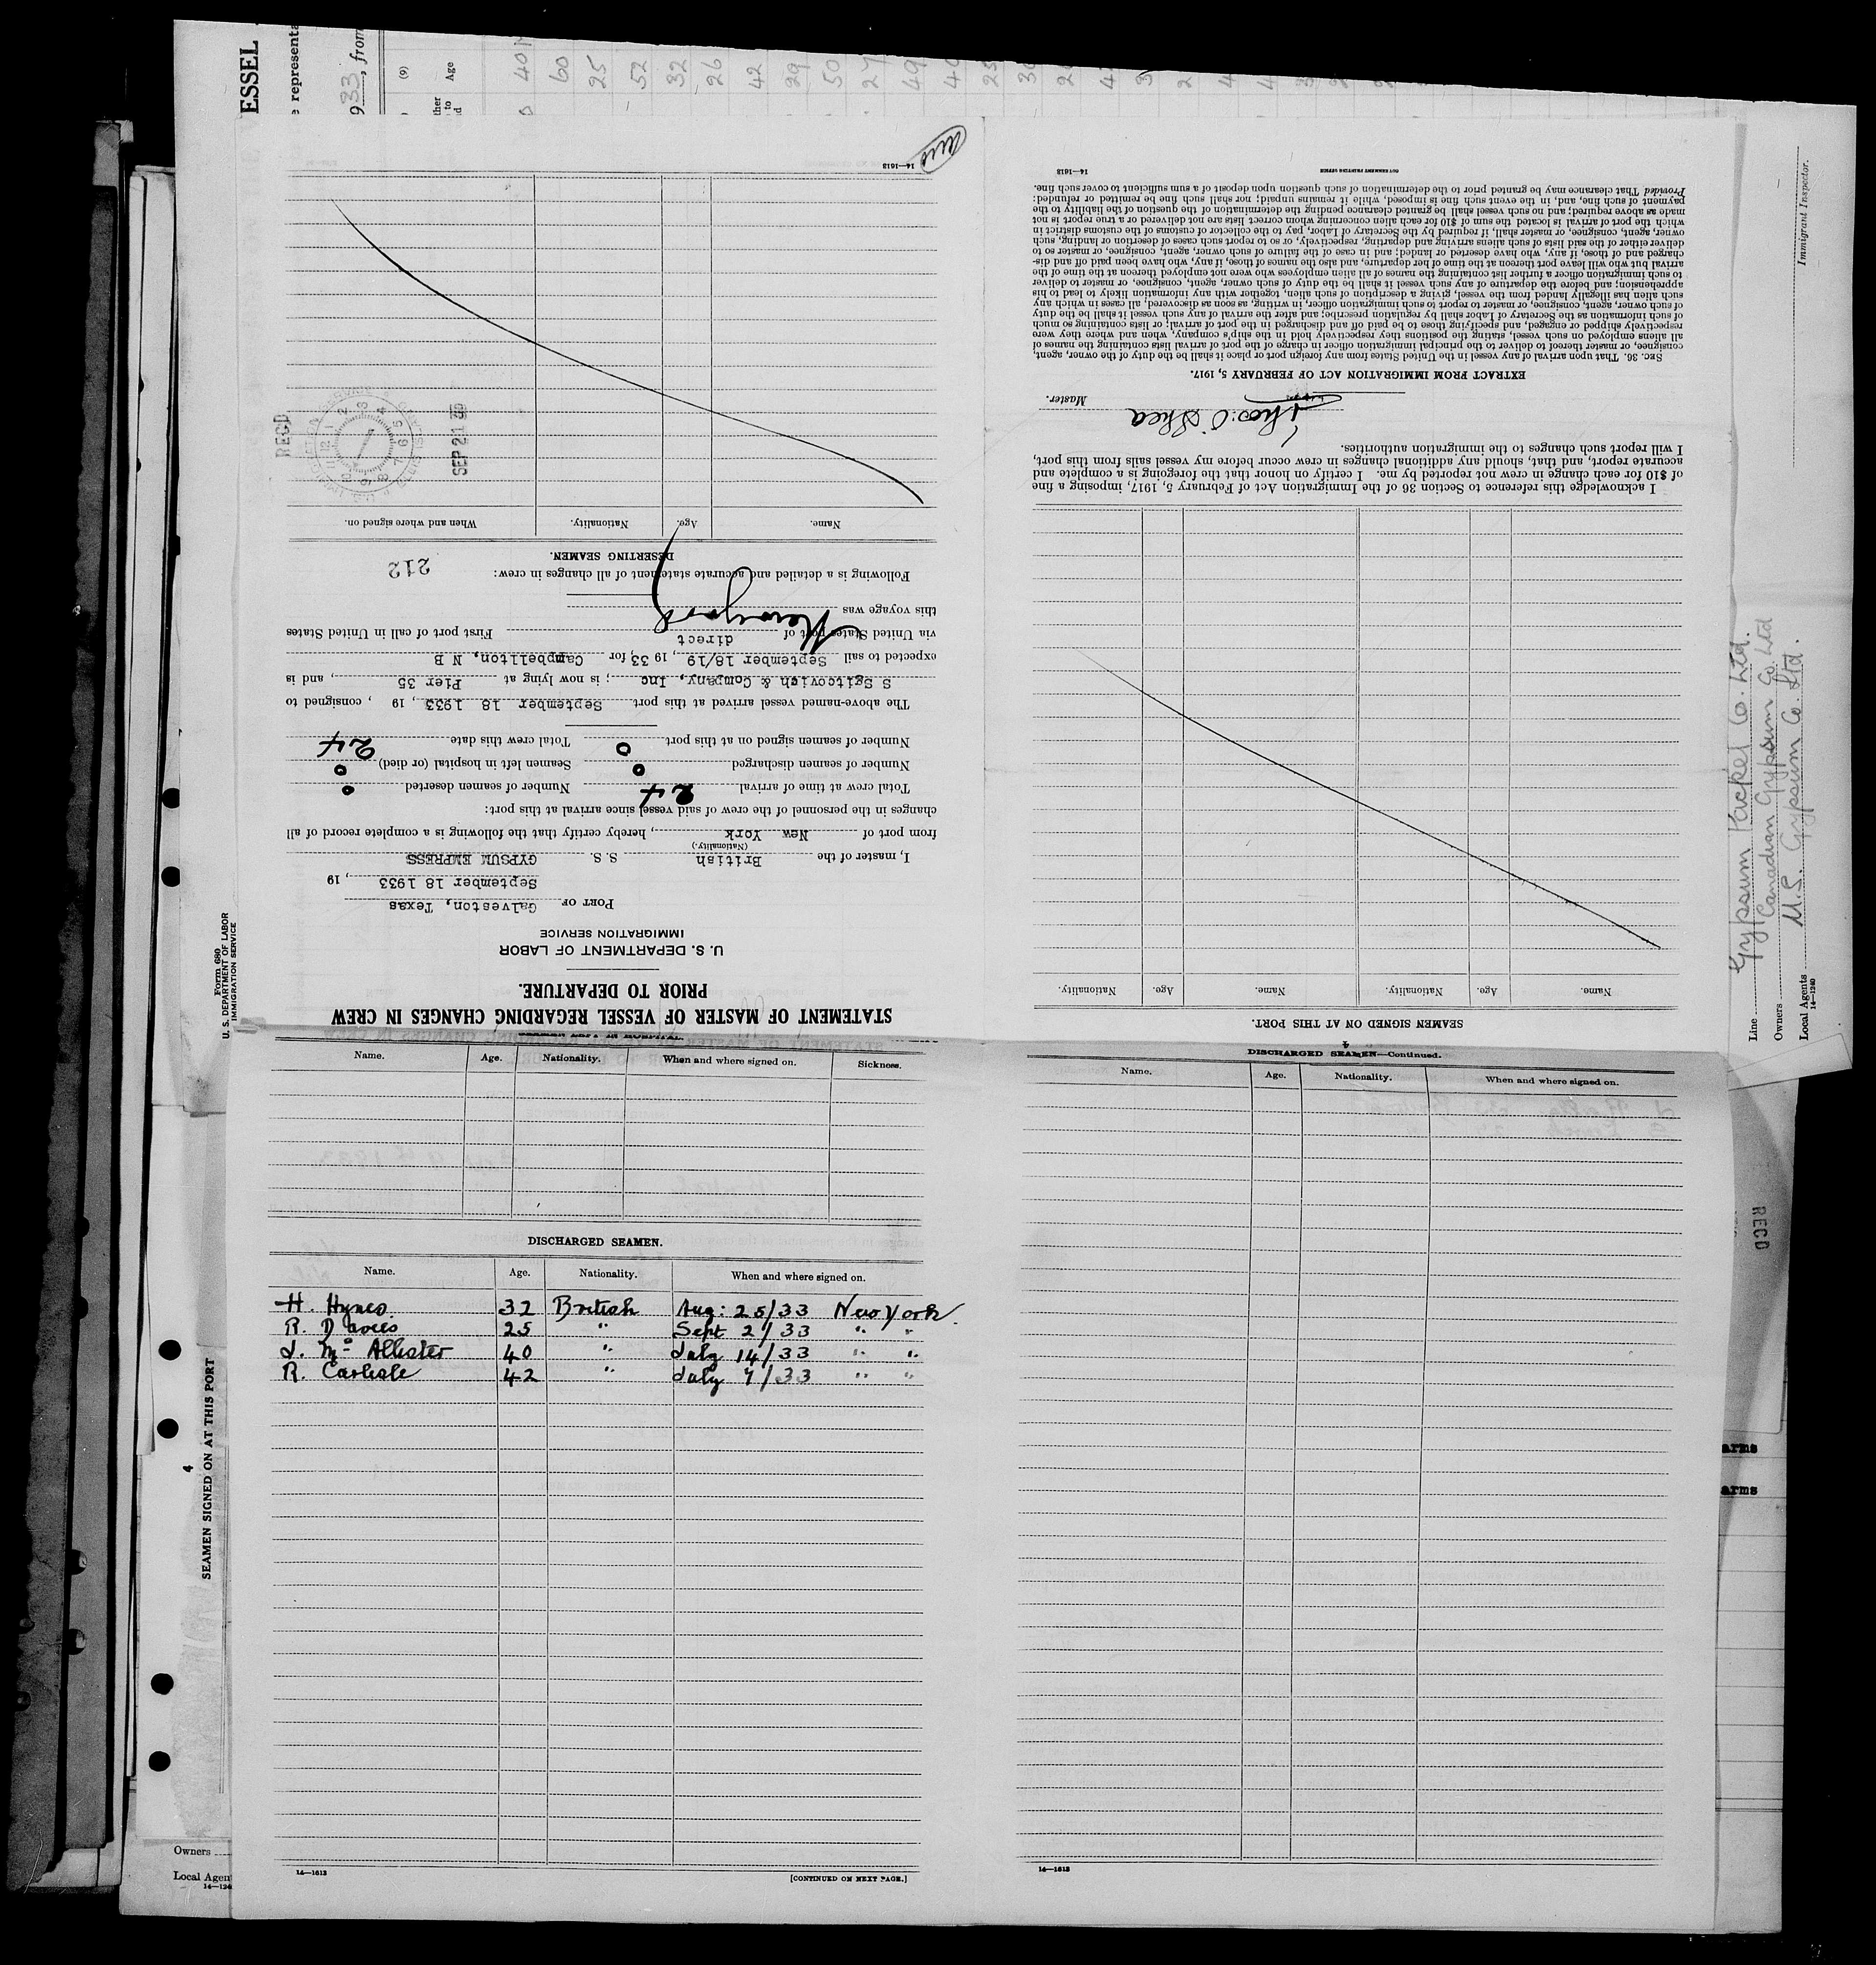 ESSEL
e representa
933, from
(9)
Age
ther
to
d
40
60
25
52
32
26
42
29
50
27
49
STATEMENT OF MASTER OF VESSEL REGARDING CHANGES IN CREW
PRIOR TO DEPARTURE.
U. S. DEPARTMENT OF LABOR
IMMIGRATION SERVICE
PORT OF Galveston, Texas
September 18 1933, 19
I, master of the British S. S. GYPSUM EMPRESS
(Nationality.)
from port of New York, hereby certify that the following is a complete record of all
changes in the personnel of the crew of said vessel since arrival at this port:
Total crew at time of arrival 24 Number of seamen deserted 0
Number of seamen discharged 0 Seamen left in hospital (or died) 0
Number of seamen signed on at this port 0 Total crew this date 24
The above-named vessel arrived at this port September 18 1933, 19 , consigned to
S Sgitcovich & Company, Inc; is now lying at Pier 35, and is
expected to sail September 18/19, 19 33, for Campbellton, N B
via United States port of direct First port of call in United States
this voyage was New York
Following is a detailed and accurate statement of all changes in crew:
212
DESERTING SEAMEN.
Name. Age. Nationality. When and where signed on.
RECD
SEP 21 33
14—1613
SEAMEN SIGNED ON AT THIS PORT.
Name. Age. Nationality. Name. Age. Nationality.
I acknowledge this reference to Section 36 of the Immigration Act of February 5, 1917, imposing a fine
of $10 for each change in crew not reported by me. I certify on honor that the foregoing is a complete and
accurate report, and that, should any additional changes in crew occur before my vessel sails from this port,
I will report such changes to the immigration authorities.
Thos: O'Shea
Master.
EXTRACT FROM IMMIGRATION ACT OF FEBRUARY 5, 1917.
Sec. 36. That upon arrival of any vessel in the United States from any foreign port or place it shall be the duty of the owner, agent,
consignee, or master thereof to deliver to the principal immigration officer in charge of the port of arrival lists containing the names of
all aliens employed on such vessel, stating the positions they respectively hold in the ship's company, when and where they were
respectively shipped or engaged, and specifying those to be paid off and discharged in the port of arrival; or lists containing so much
of such information as the Secretary of Labor shall by regulation prescribe; and after the arrival of any such vessel it shall be the duty
of such owner, agent, consignee, or master to report to such immigration officer, in writing, as soon as discovered, all cases in which any
such alien has illegally landed from the vessel, giving a description of such alien, together with any information likely to lead to his
apprehension; and before the departure of any such vessel it shall be the duty of such owner, agent, consignee, or master to deliver
to such immigration officer a further list containing the names of all alien employees who were not employed thereon at the time of the
arrival but who will leave port thereon at the time of her departure, and also the names of those, if any, who have been paid off and dis-
charged and of those, if any, who have deserted or landed; and in case of the failure of such owner, agent, consignee, or master so to
deliver either of the said lists of such aliens arriving and departing, respectively, or so to report such cases of desertion or landing, such
owner, agent, consignee, or master shall, if required by the Secretary of Labor, pay to the collector of customs of the customs district in
which the port of arrival is located the sum of $10 for each alien concerning whom correct lists are not delivered or a true report is not
made as above required; and no such vessel shall be granted clearance pending the determination of the question of the liability to the
payment of such fine, and, in the event such fine is imposed, while it remains unpaid; nor shall such fine be remitted or refunded:
Provided That clearance may be granted prior to the determination of such question upon deposit of a sum sufficient to cover such fine.
14—1613 GOVERNMENT PRINTING OFFICE
Immigrant Inspector.
Line Gypsum Packet Co. Ltd.
Canadian Gypsum Co Ltd
Owners
U.S. Gypsum Co. Ltd.
Local Agents
14—1240
Form 680
U. S. DEPARTMENT OF LABOR
IMMIGRATION SERVICE
SEAMEN LEFT IN HOSPITAL.
Name. Age. Nationality. When and where signed on. Sickness.
DISCHARGED SEAMEN.
Name. Age. Nationality. When and where signed on.
H. Hynes 32 British Aug: 25/33 New York.
R. Davies 25 " Sept 2/33 " "
J. Mc Allister 40 " July 14/33 " "
R. Carlisle 42 " July 7/33 " "
14—1613 [CONTINUED ON NEXT PAGE.]
4
DISCHARGED SEAMEN—Continued.
Name. Age. Nationality. When and where signed on.
14—1613
4
SEAMEN SIGNED ON AT THIS PORT
Owners
Local Agen
14—124
RECD
arms
arms